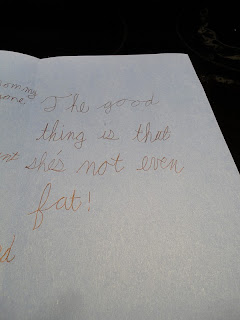 The good
thing is that
she's not even
fat!